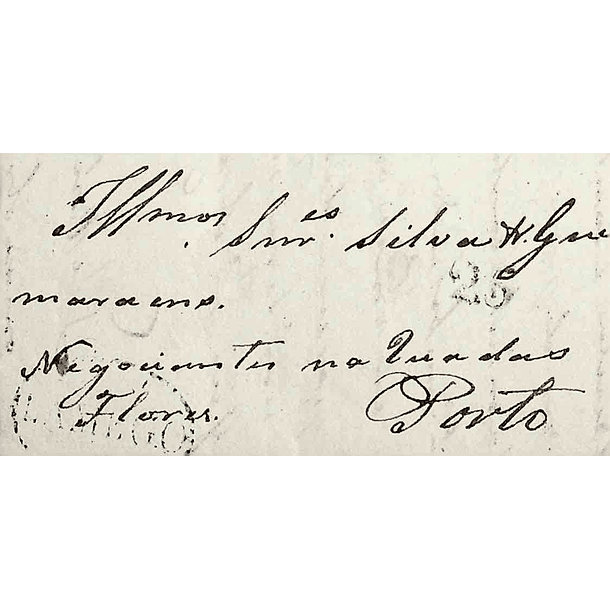 Illmos Snres. Silva & Gui
maraens.
25
Negociantes na Rua das
Flores. Porto
LAMEGO